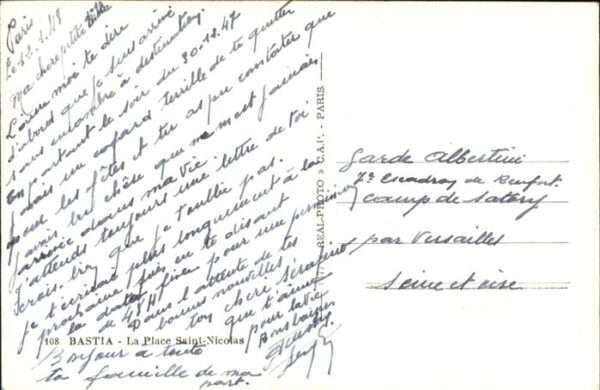 Paris
Le 12.1.48
Ma chère petite
Laisse moi te dire
d'abord que je suis arrivé
sans encombre à destination.
En partant le soir du 30-12-47
j'avais un cafard terrible de te quitter
pour les fêtes et tu as pu constater que
chose que ne m'est jamais
arrivée dans ma vie.
J'attends toujours une lettre de toi
que je t'oublie pas.
je t'écrirai plus longuement à la
prochaine fois en te disant
la date fixe pour une permission
de 48 H
Dans l'attente de tes
bonnes nouvelles
ton cheri Serafino
que t'aime
pour la vie
Bons baisers
Bonjour a toute
ta famille de ma
part.
108 BASTIA - La Place Saint-Nicolas
REAL-PHOTO » C.A.P. - PARIS
Garde Albertini
7e Escadron de Renfort
Camp de Satory
par Versailles
Seine et oise